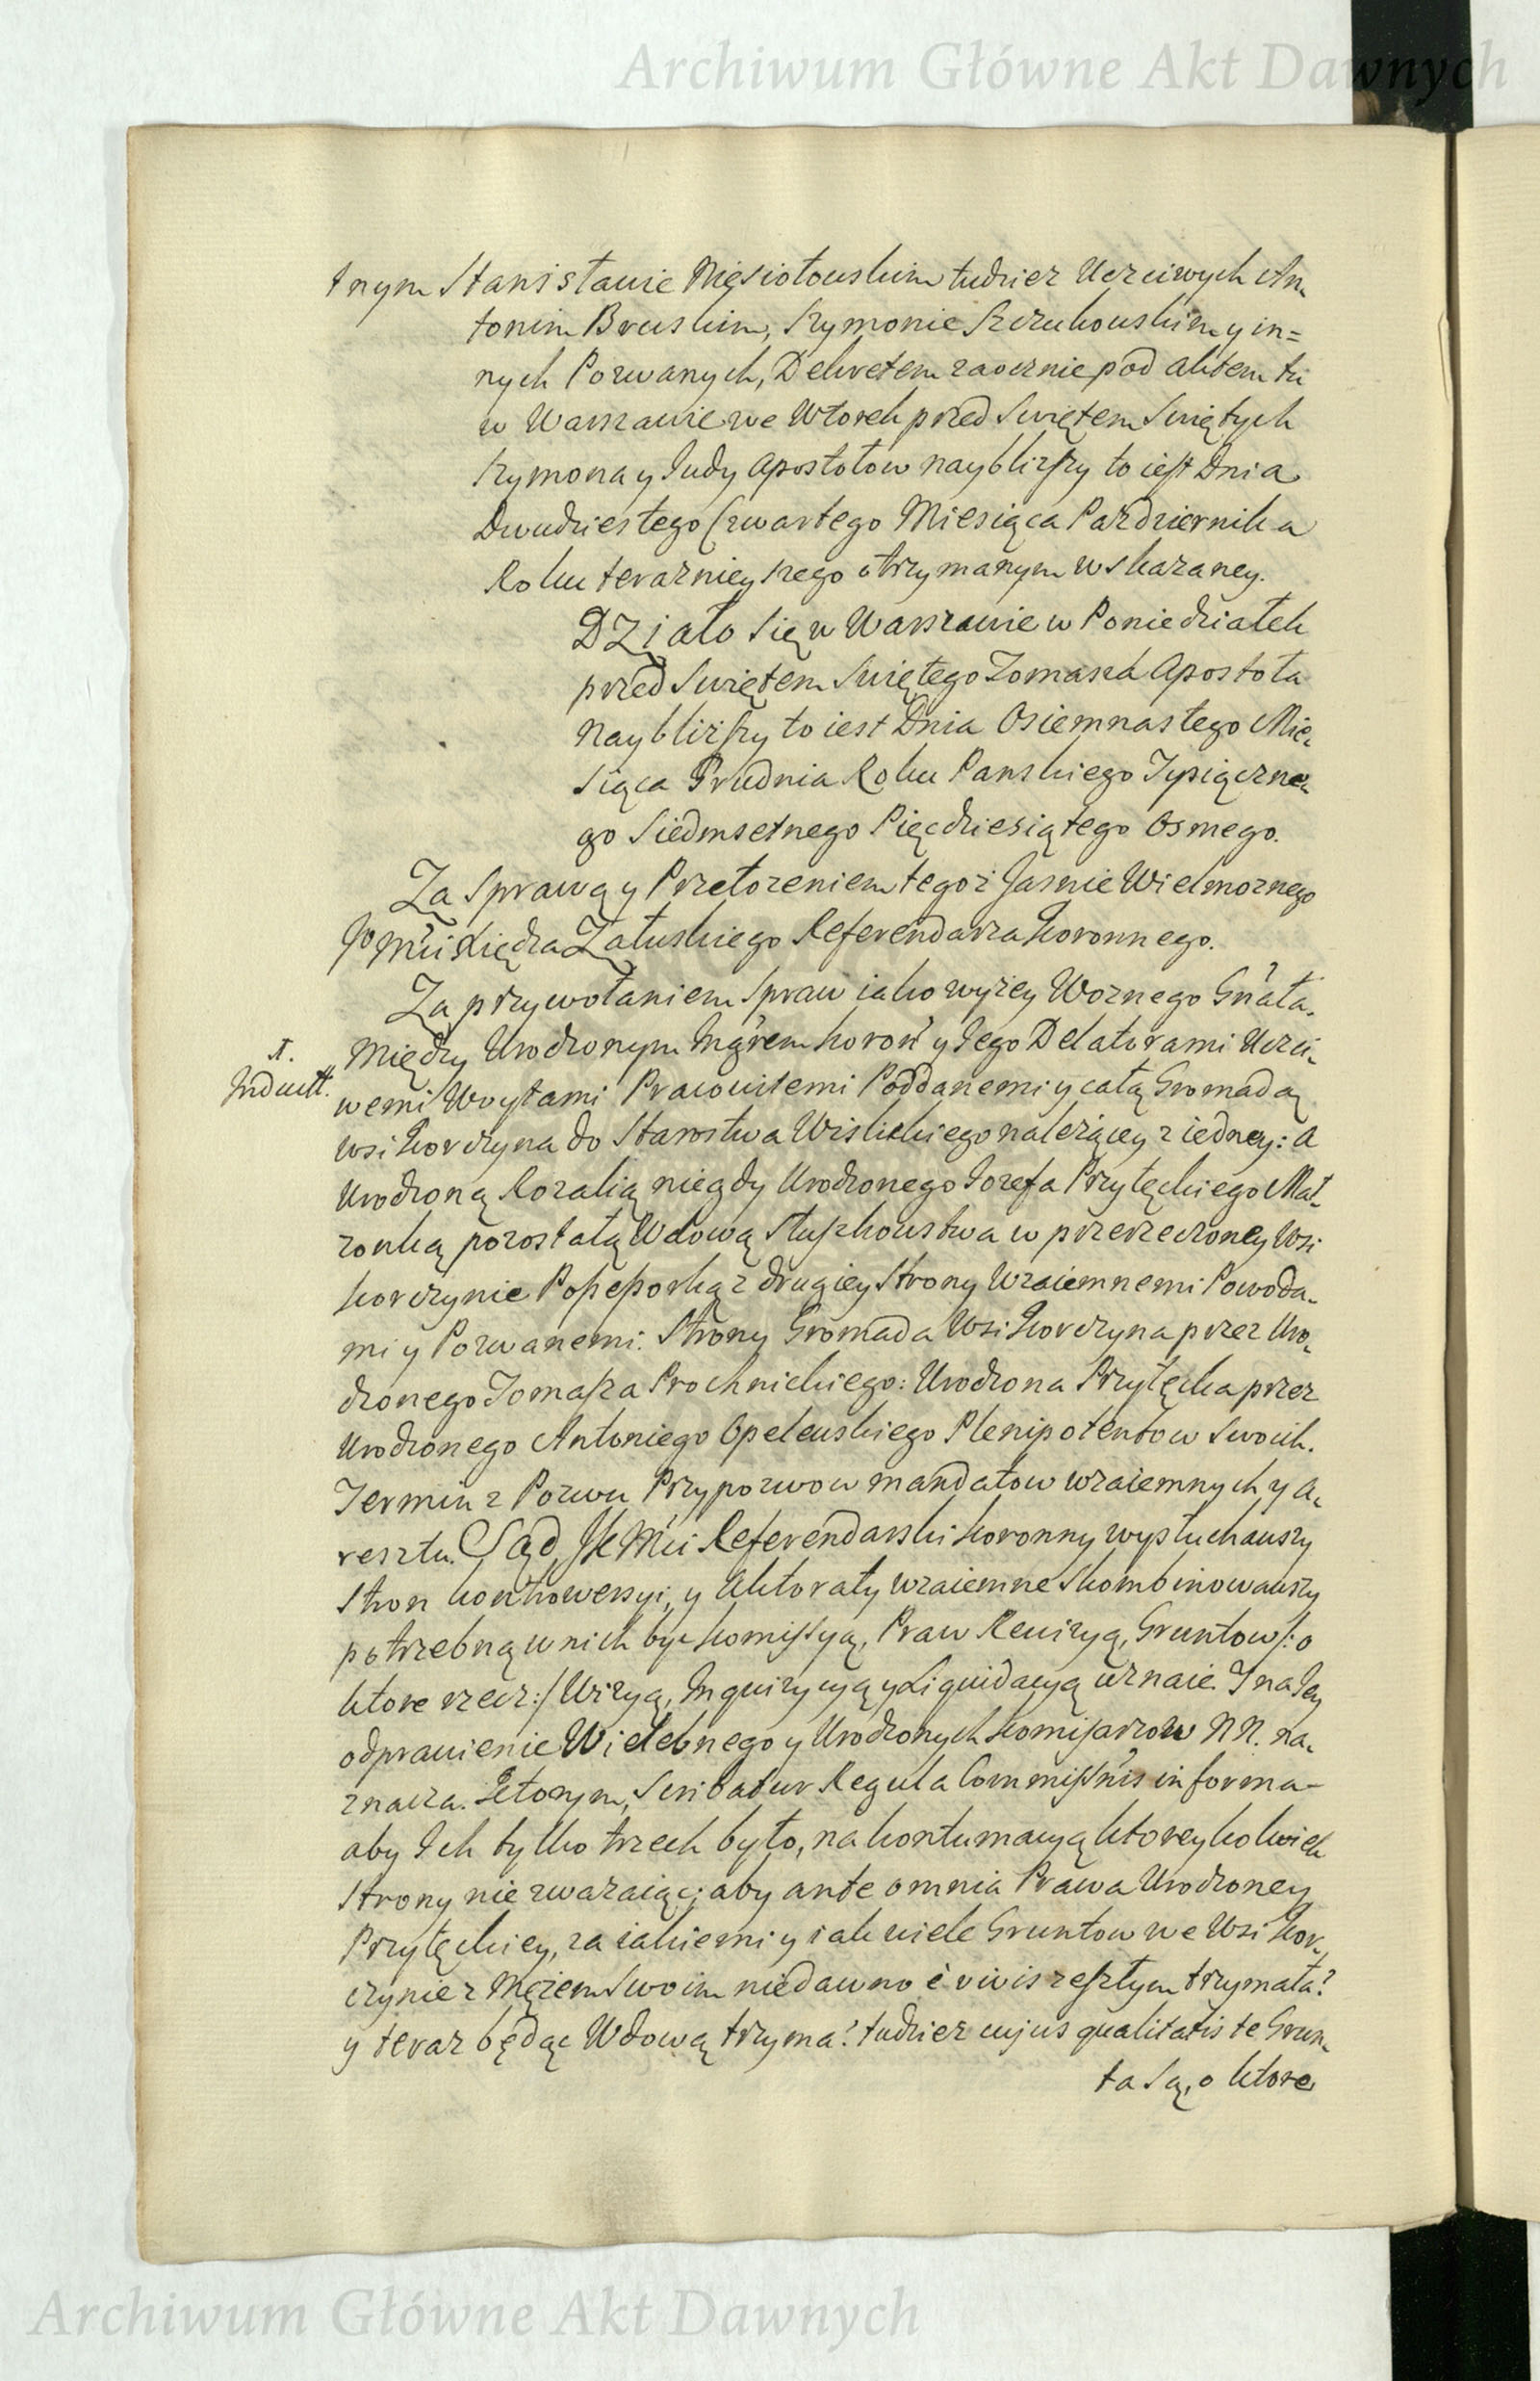 Archiwum Główne Akt Dawnych
tnym Stanisławie Mięsiotowskim tudziez Uczciwych An,
tonim Bruskim, Szymonie Szczukowskim y in=
nych Pozwanych, Dekretem zaocznie pod aktem tu
w Warszawie we Wtorek przed Swiętem Swiętych
Szymona y Judy Apostołow nayblizszy to iest Dnia
Dwudziestego Czwartego Miesiąca Pazdziernika
Roku teraznieyszego otrzymanym wskazaney.
DZiało się w Warszawie w Poniedziałek
przed Swiętem Swiętego Tomasza Apostoła
Nayblizszy to iest Dnia Osiemnastego Mie,
siąca Grudnia Roku Panskiego Tysiączne,
go Siedmsetnego Pięcdziesiątego Osmego.
Za Sprawą y Przełozeniem tegoz Jasnie Wielmoznego
Jo Mći Xiędza Załuskiego Referendarza Koronnego.
Za przywołaniem Spraw iako wyzey Woznego Gn̄ała.
Między Urodzonym Ingrem Koron y Jego Delatorami Uczci,
Induct.
wemi Woytami Pracowitemi Poddanemi y całą Gromadą
wsi Korczyna do Starostwa Wislickiego nalezącey z iedney: a
Urodzoną Rozalią niegdy Urodzonego Jozefa Przyłęckiego Mał,
zonką pozostałą Wdową Słuzkowstwa w przerzeczoney Wsi
Korczynie Possessorką z drugiey Strony Wzaiemnemi Powoda,
mi y Pozwanemi. Strony Gromada Wsi Korczyna przez Uro,
dzonego Tomasza Prochnickiego: Urodzona Przyłęcka przez
Urodzonego Antoniego Opelewskiego Plenipotentow Swoich.
Termin z Pozwu Przypozwow mandatow wzaiemnych y a,
resztu. Sąd JK Mći Referendarski Koronny wysłuchawszy
Stron kontrowersyi, y Aktoraty wzaiemne Skombinowawszy
potrzebną w nich byc Komissyą, Praw Rewizyą, Gruntow /: o
ktore rzecz :/ Wizyą, Inquizycyą y Liquidacyą uznaie. I na Jey
odprawienie Wielebnego y Urodzonych Komissarzow NN. na,
znacza. Ktorym, Scribatur Regula Commissn̄is in forma-
aby Jch tylko trzech było, na kontumacyą ktoreykolwiek
Strony nie zwazaiąc; aby ante omnia Prawa Urodzoney
Przyłęckiey, za iakiemi y iak wiele Gruntow we Wsi Kor,
czynie z Męzem Swoim niedawno è vivis zeszłym trzymała?
y teraz będąc Wdową trzyma? tudziez cujus qualitatis te Grun,
ta Są, o ktore
Archiwum Główne Akt Dawnych